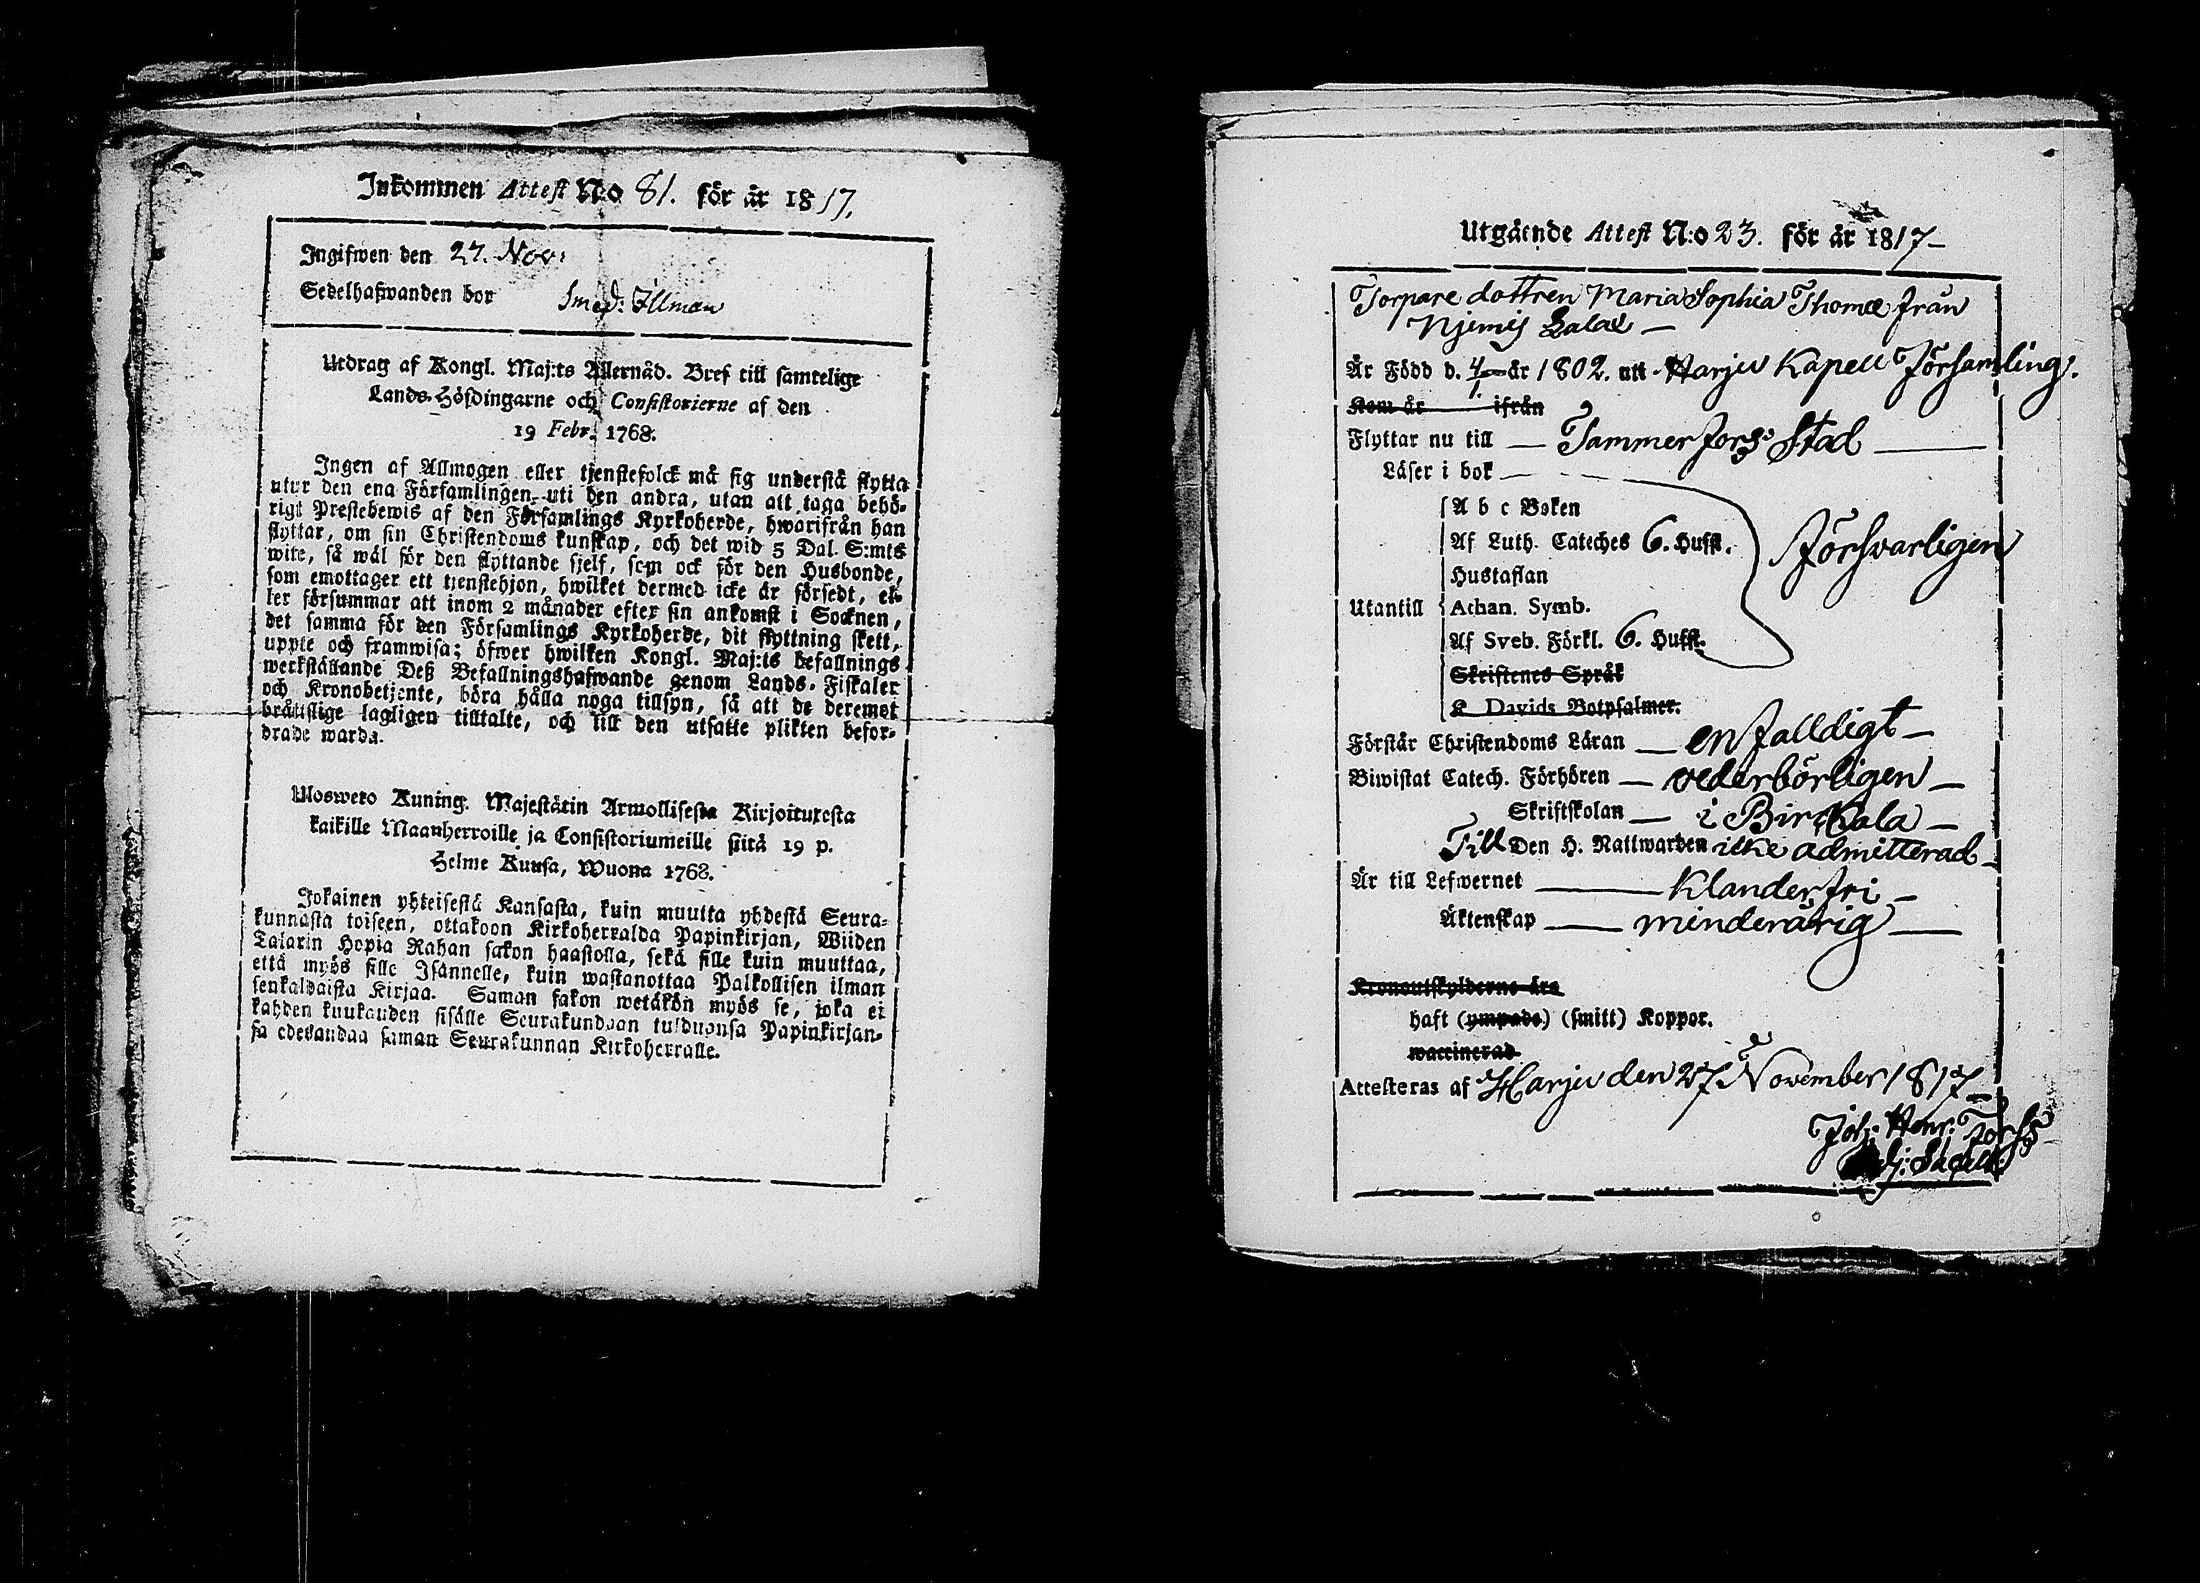 Inkommen Attest N:o 81. för år 1817.
Ingifwen den 27. Nov:
Sedelhafwanden bor Smed: Illman
Utdrag af Kongl. Maj:ts Allernåd. Bref till samtelige
Lands-Höfdingarne och Consistorierne af den
19 Febr. 1768.
Ingen af Allmogen eller tjenstefolck må sig understå flytta
utur den ena Församlingen uti den andra, utan att taga behö-
rigt Prestebewis af den Församlings Kyrkoherde, hwarifrån han
flyttar, om sin Christendoms kunskap, och det wid 5 Dal. S:mts
wite, så wäl för den flyttande sjelf, som ock för den Husbonde,
som emottager ett tjenstehjon, hwilket dermed icke är försedt, el-
ler försummar att inom 2 månader efter sin ankomst i Socknen,
det samma för den Församlings Kyrkoherde, dit flyttning skett,
uppte och framwisa; öfwer hwilken Kongl. Maj:ts befallnings
werkställande Deß Befallningshafwande genom Lands-Fiskaler
och Kronobetjente, böra hålla noga tillsyn, så att de deremot
bråttslige lagligen tilltalte, och till den utsatte plikten befor-
drade warda.
Uloswero Kuning. Majestätin Armollisesta Kirjoituxesta
kaikille Maanherroille ja Consistoriumeille siitä 19 p.
Helme Kuusa, Wuona 1768.
Jokainen yhteisestä Kansasta, kuin muutta yhdestä Seura-
kunnasta toiseen, ottakoon Kirkoherralda Papinkirjan, Wiiden
Talarin Hopia Rahan sakon haastolla, sekä sille kuin muuttaa,
että myös sille Isännelle, kuin wastanottaa Palkollisen ilman
senkaldaista Kirjaa. Saman sakon wetäkön myös se, joka ei
kahden kuukauden sisälle Seurakundaan tulduansa Papinkirjan-
sa edesandaa saman Seurakunnan Kirkoherralle.
Utgående Attest N:o 23. för år 1817
Torpare dottren Maria Sophia Thomæ från
Njemis
Är Född d. 4/1 år 1802. uti Harju Kapell Församling.
Kom år ifrån
Flyttar nu till Tammerfors Stad
Läser i bok
A b c Boken
Af Luth. Cateches 6. Hufst. Försvarligen
Hustaflan
Utantill Athan. Symb.
Af Sveb. Förkl. 6. Hufst.
Skriftenes Språk
K Davids Botpsalmer.
Förstår Christendoms Läran enfalldigt
Biwistat Catech. Förhören vederbörligen
Skriftskolan i Birckala
Till Den H. Nattwarden icke admitterad
Är till Lefwernet Klanderfri
Äktenskap minderårig
Kronoutskylderne äro
haft (ympade) (smitt) Koppor.
waccinerad
Attesteras af Harju den 27 November 1817
Joh: Henr: Forss